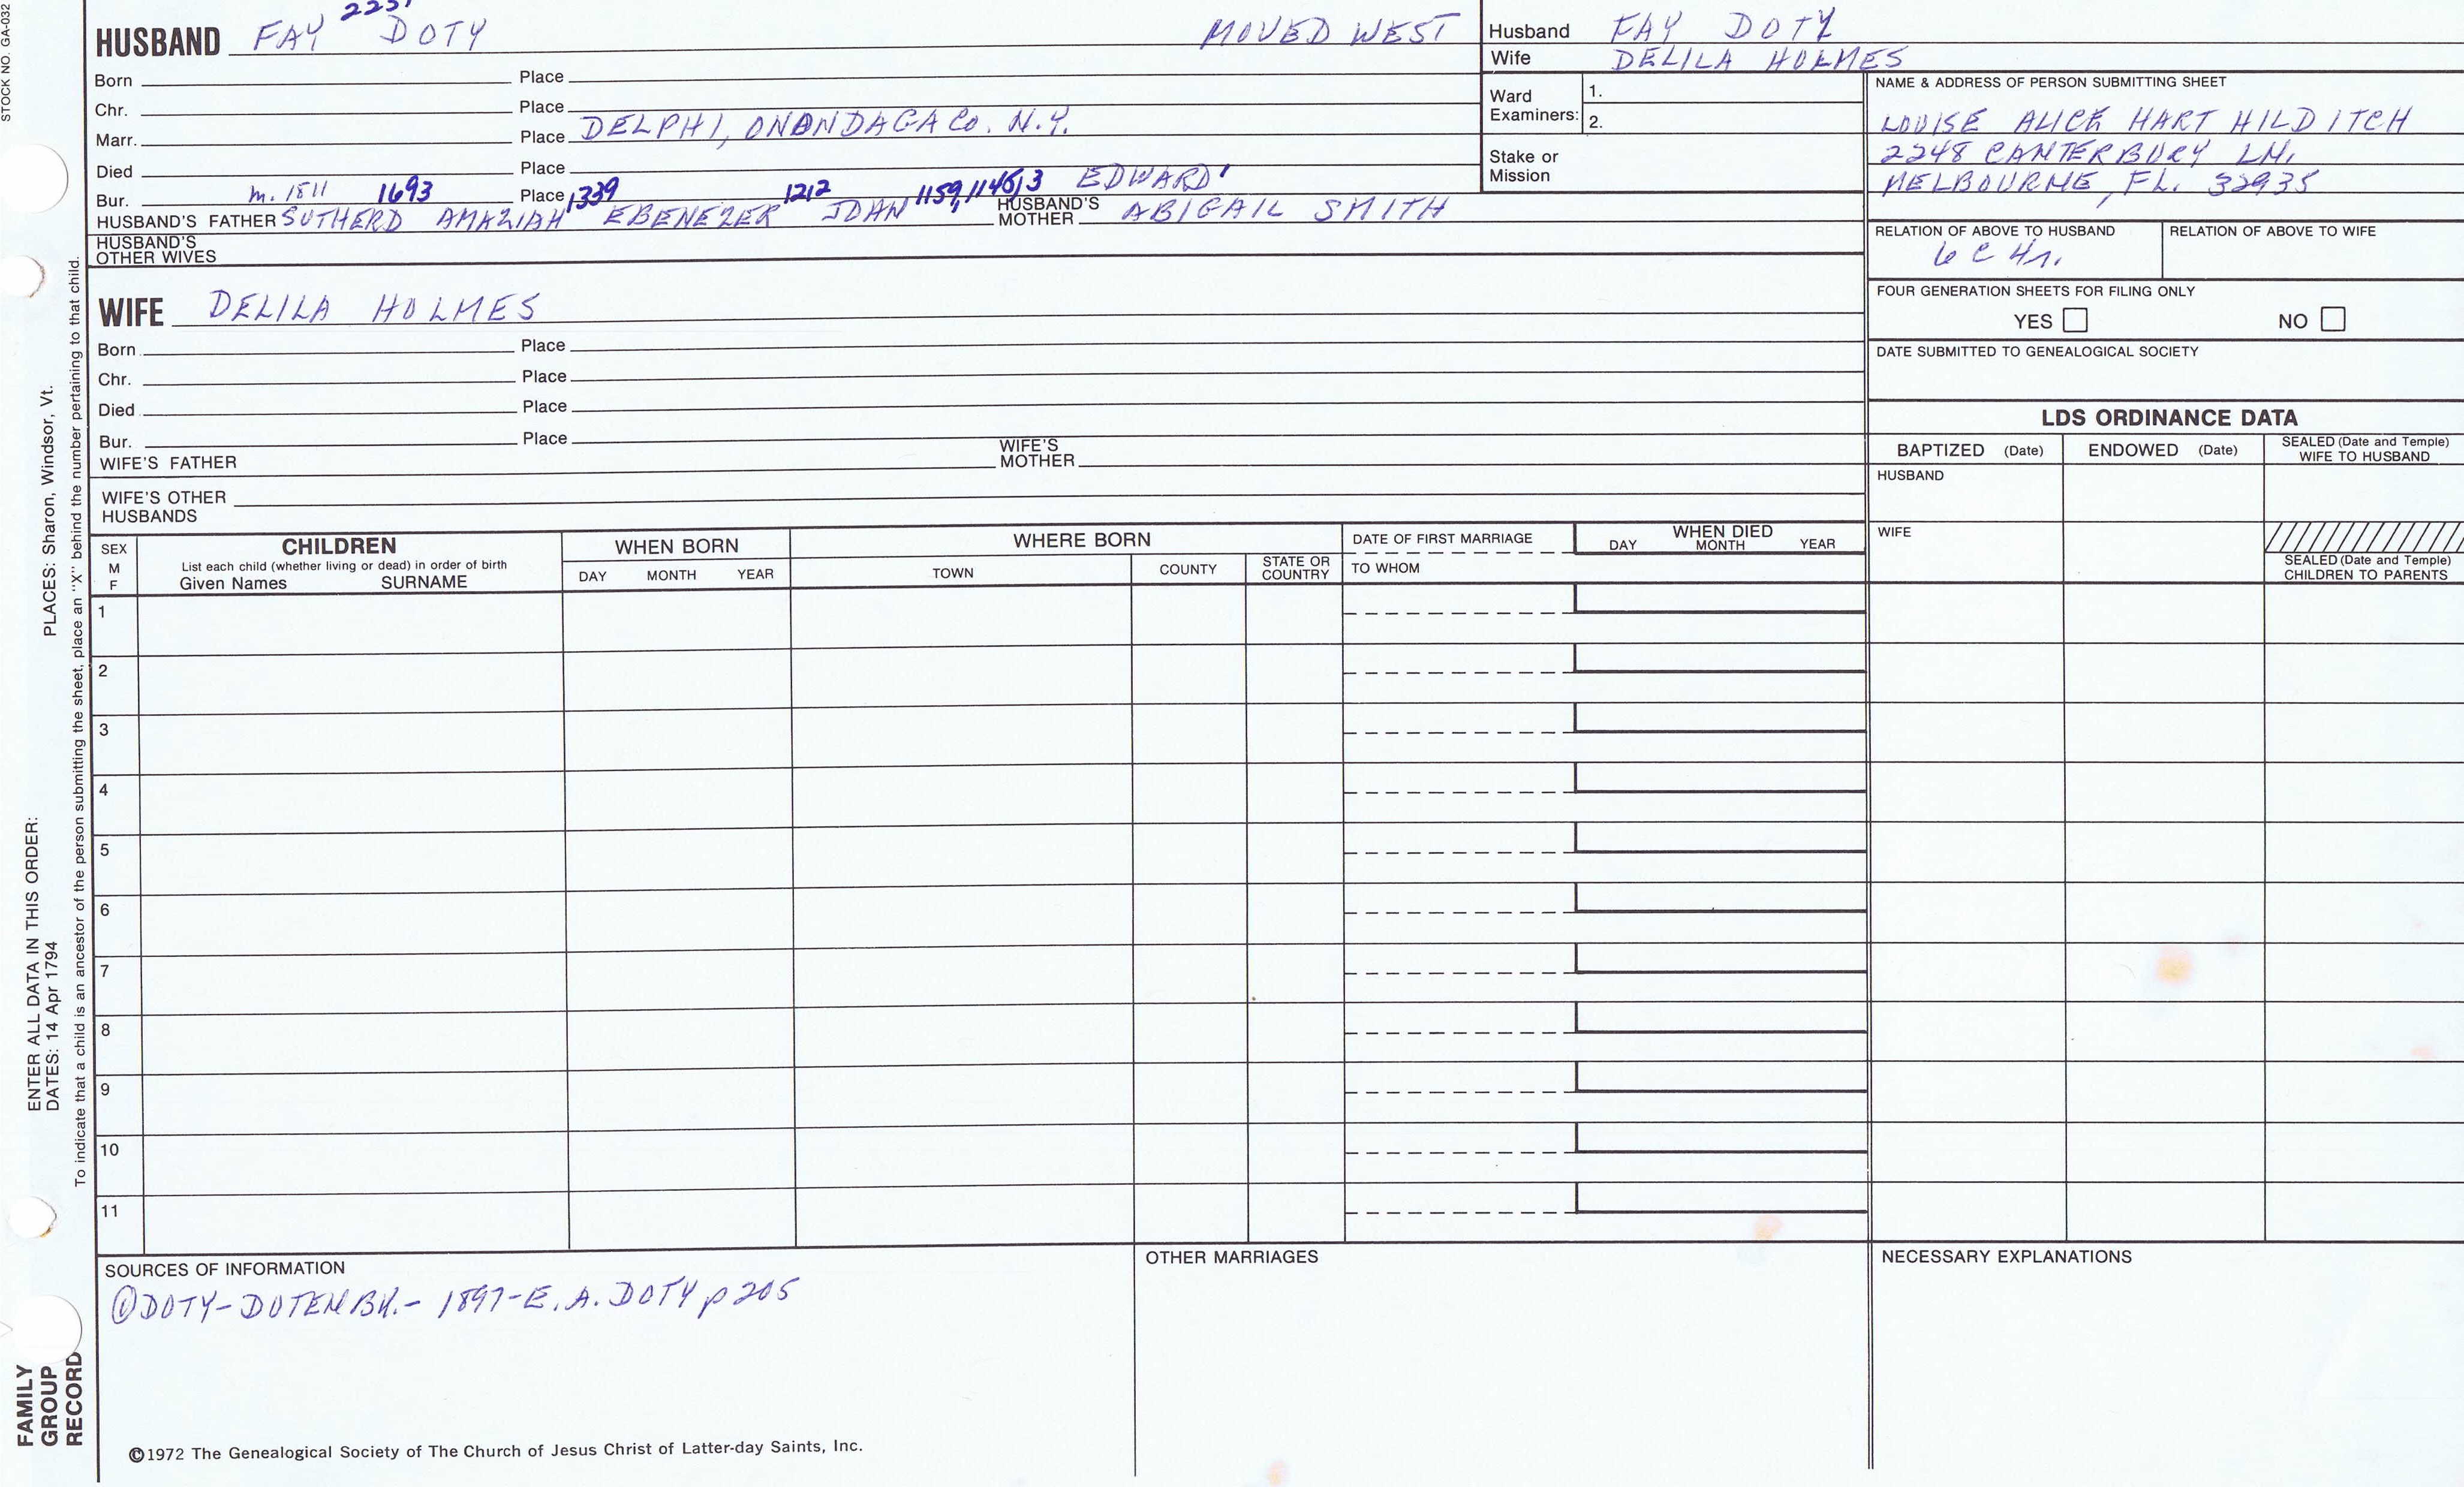 STOCK NO. GA-032
HUSBAND FAY DOTY MOVED WEST
Born Place
Chr. Place
Marr. Place DELPHI, ONANDAGA Co. N.Y.
Died Place
Bur. m. 1811 1693 Place 1339 1212 1159, 1145,3 EDWARD'
HUSBAND'S FATHER SUTHERD AMAZIAH EBENEZER JOHN HUSBAND'S MOTHER ABIGAIL SMITH
HUSBAND'S OTHER WIVES
Husband FAY DOTY
Wife DELILA HOLMES
Ward Examiners: 1.
2.
Stake or Mission
NAME & ADDRESS OF PERSON SUBMITTING SHEET
LOUISE ALICE HART HILDITCH
2248 CANTERBURY LN.
MELBOURNE, FL. 32935
RELATION OF ABOVE TO HUSBAND RELATION OF ABOVE TO WIFE
6 C 4r.
FOUR GENERATION SHEETS FOR FILING ONLY
YES NO
DATE SUBMITTED TO GENEALOGICAL SOCIETY
WIFE DELILA HOLMES
Born Place
Chr. Place
Died Place
Bur. Place
WIFE'S FATHER WIFE'S MOTHER
WIFE'S OTHER HUSBANDS
LDS ORDINANCE DATA
BAPTIZED (Date) ENDOWED (Date) SEALED (Date and Temple) WIFE TO HUSBAND
HUSBAND
WIFE
SEALED (Date and Temple) CHILDREN TO PARENTS
SEX M F
CHILDREN
List each child (whether living or dead) in order of birth
Given Names SURNAME
WHEN BORN
DAY MONTH YEAR
WHERE BORN
TOWN COUNTY STATE OR COUNTRY
DATE OF FIRST MARRIAGE
TO WHOM
WHEN DIED
DAY MONTH YEAR
1
2
3
4
5
6
7
8
9
10
11
SOURCES OF INFORMATION
① DOTY-DOTEN BK.- 1897-E.A. DOTY p 205
OTHER MARRIAGES
NECESSARY EXPLANATIONS
©1972 The Genealogical Society of The Church of Jesus Christ of Latter-day Saints, Inc.
FAMILY GROUP RECORD
ENTER ALL DATA IN THIS ORDER:
DATES: 14 Apr 1794 PLACES: Sharon, Windsor, Vt.
To indicate that a child is an ancestor of the person submitting the sheet, place an "X" behind the number pertaining to that child.